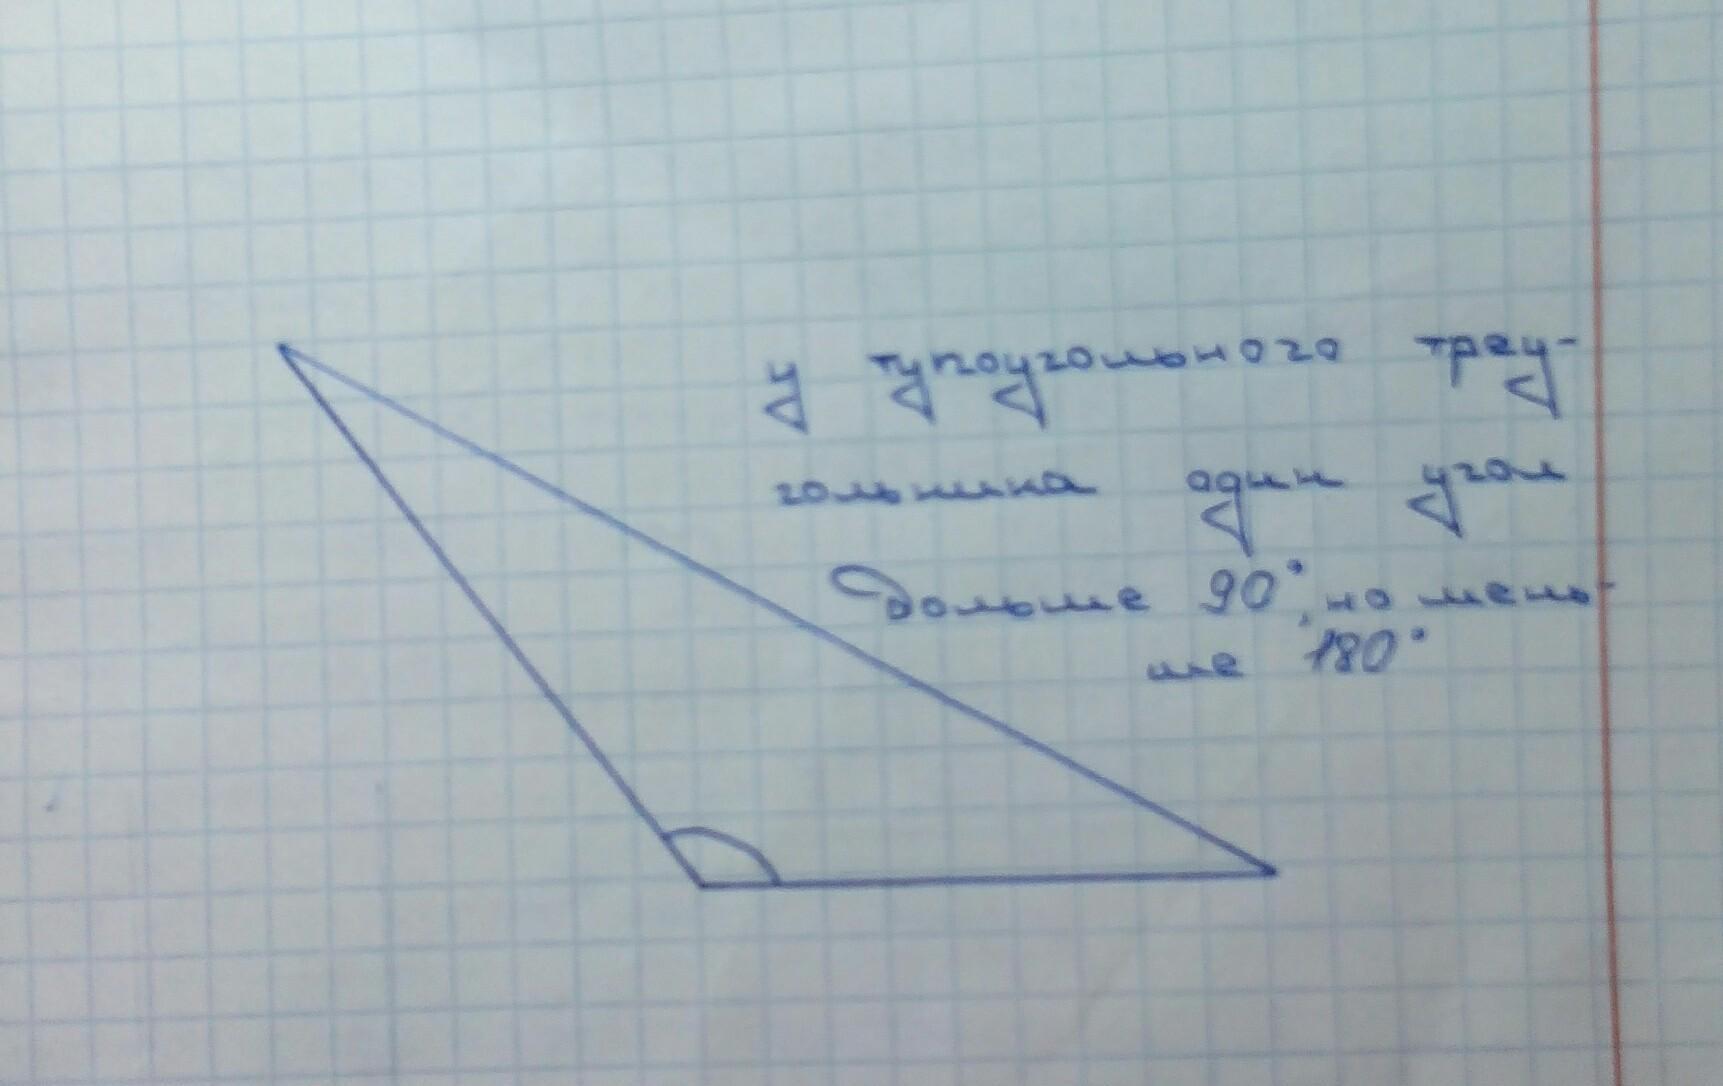 у тупоугольного треу-
гольника один угол
больше 90°, но мень-
ше 180°